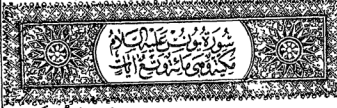 سورة يونس عليه السلام
مكية وهي مائة وتسع آيات